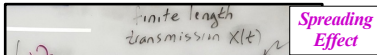 finite length
transmission X(t)
Spreading
Effect